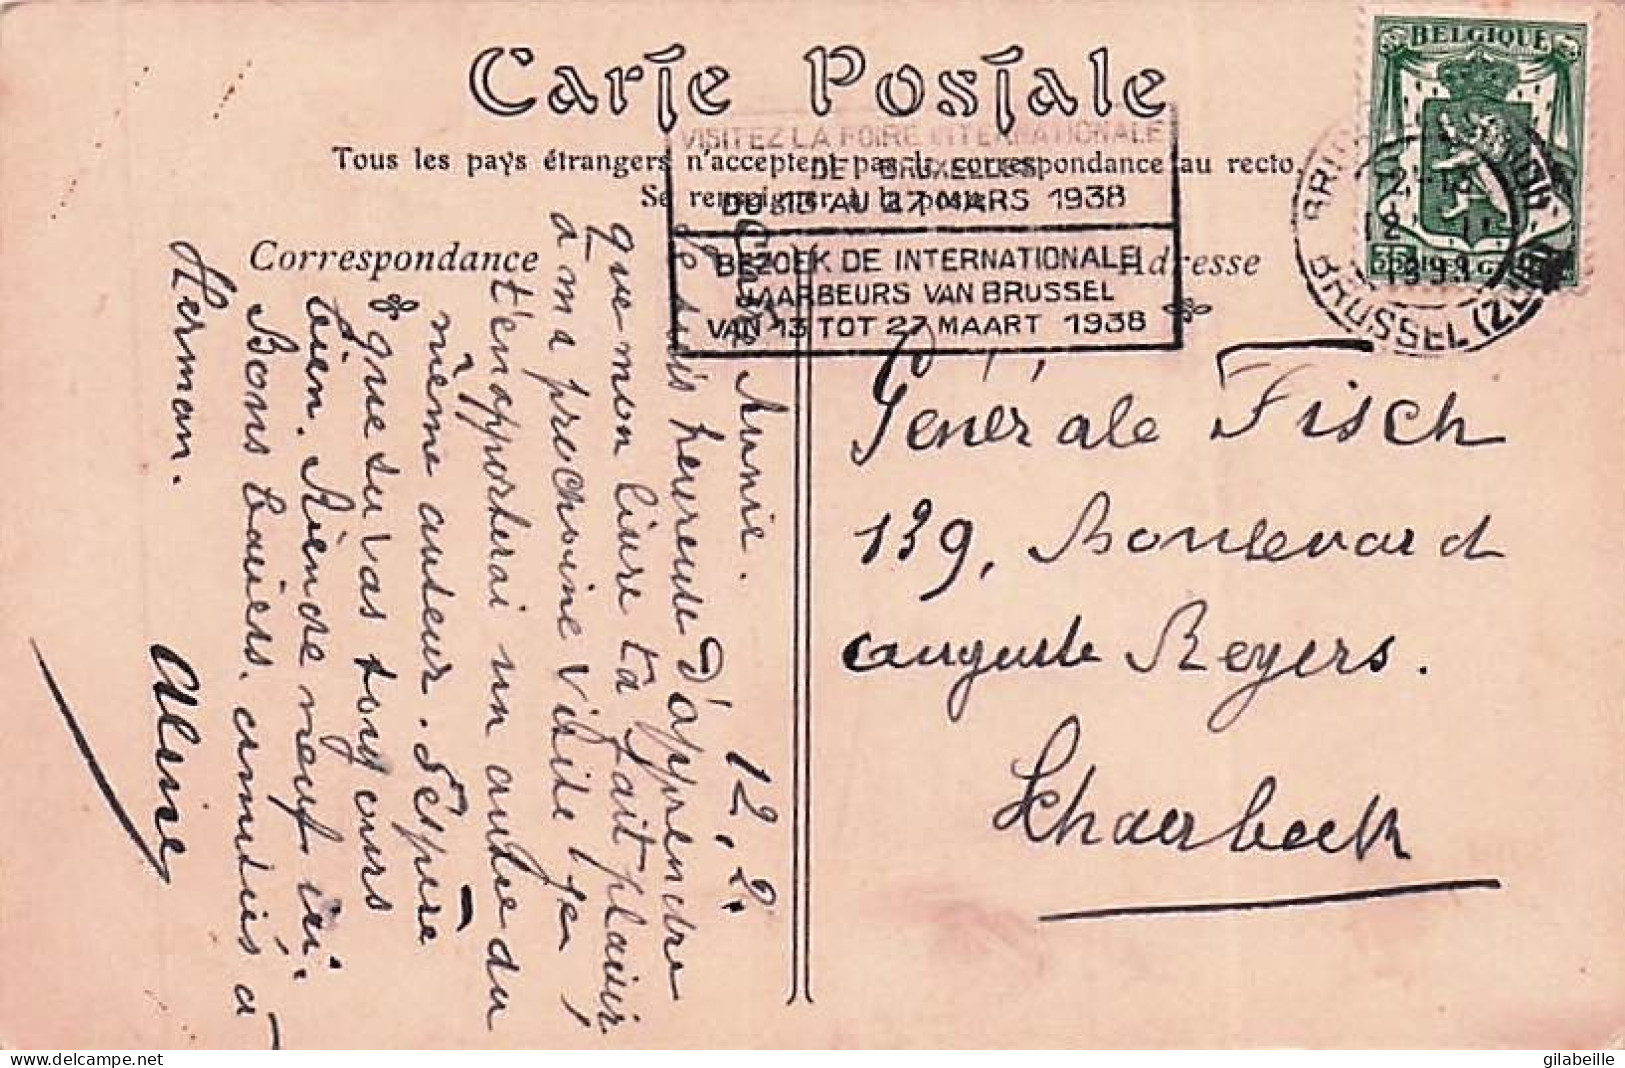 Carte Postale
Tous les pays étrangers n'acceptent pas la correspondance au recto.
Se renseigner à la poste.
Correspondance
Adresse
BELGIQUE
VISITEZ LA FOIRE INTERNATIONALE
DE BRUXELLES
DU 13 AU 27 MARS 1938
BEZOEK DE INTERNATIONALE
JAARBEURS VAN BRUSSEL
VAN 13 TOT 27 MAART 1938
BRUSSEL (ZUID)
12.2.
Annie.
Je suis heureuse d'apprendre
que mon livre t'a fait plaisir,
à ma prochaine visite je
t'en apporterai un autre du
même auteur. J'espère
que tu vas toujours
bien. Rien de neuf ici.
Bons baisers. amitiés à
Herman.
Générale Fisch
139, Boulevard
Auguste Reyers.
Schaerbeek
gilabeille